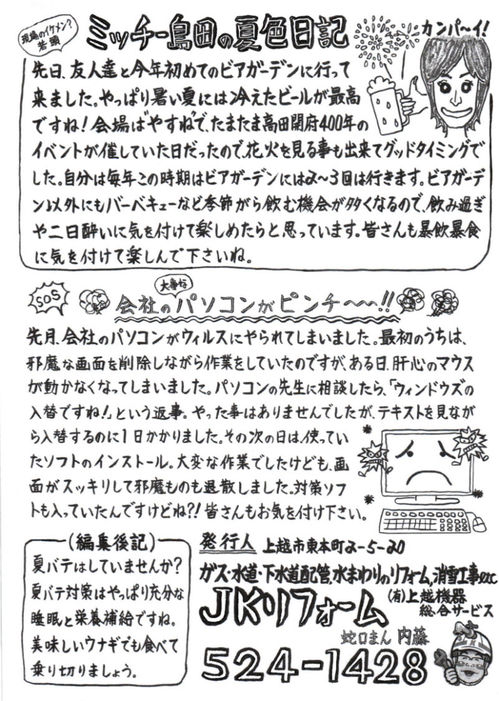 現場のイケメン?
若頭
ミッチー島田の夏色日記
カンパ〜イ!
先日、友人達と今年初めてのビアガーデンに行って
来ました。やっぱり暑い夏には冷えたビールが最高
ですね!会場は"やすね"で、たまたま高田開府400年の
イベントが催していた日だったので、花火を見る事も出来てグッドタイミングで
した。自分は毎年この時期はビアガーデンには2〜3回は行きます。ビアガーデ
ン以外にもバーベキューなど季節がら飲む機会が多くなるので、飲み過ぎ
や二日酔いに気を付けて楽しめたらと思っています。皆さんも暴飲暴食
に気を付けて楽しんで下さいね。
SOS
大事な
会社のパソコンがピンチ〜〜!!
先月、会社のパソコンがウィルスにやられてしまいました。最初のうちは、
邪魔な画面を削除しながら作業をしていたのですが、ある日、肝心のマウス
が動かなくなってしまいました。パソコンの先生に相談したら、「ウィンドウズの
入替ですね!」という返事。やった事はありませんでしたが、テキストを見なが
ら入替するのに1日かかりました。その次の日は、使ってい
たソフトのインストール。大変な作業でしたけども、画
面がスッキリして邪魔ものも退散しました。対策ソフ
トも入っていたんですけどね?!皆さんもお気を付け下さい。
(編集後記)
夏バテはしていませんか?
夏バテ対策はやっぱり充分な
睡眠と栄養補給ですね。
美味しいウナギでも食べて
乗り切りましょう。
発行人 上越市東本町2-5-20
ガス・水道・下水道配管、水まわりのリフォーム、消雪工事etc
JKリフォーム
(有)上越機器
総合サービス
蛇口まん 内藤
524-1428